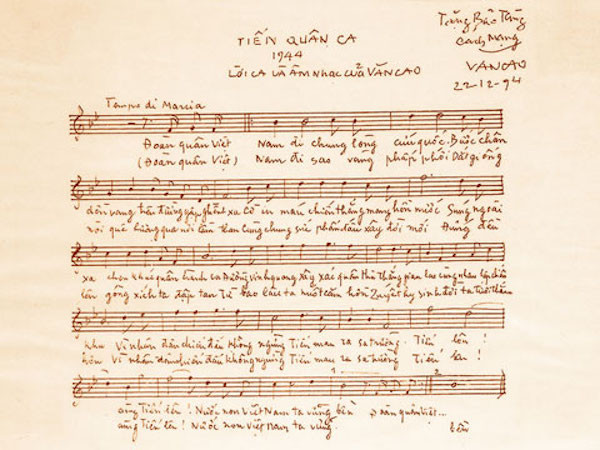 TIẾN QUÂN CA
1944
LỜI CA VÀ ÂM NHẠC CỦA VĂN CAO
Tặng Bảo Tàng
Cách Mạng
VĂN CAO
22-12-94
Tempo di Marcia
Đoàn quân Việt Nam đi chung lòng cứu quốc. Bước chân
(Đoàn quân Việt) Nam đi sao vàng phấp phới Dắt giống
dồn vang trên đường gập ghềnh xa Cờ in máu chiến thắng mang hồn nước Súng ngoài
nòi quê hương qua nơi lầm than Cùng chung sức phấn đấu xây đời mới Đứng đều
xa chen khúc quân hành ca Đường vinh quang xây xác quân thù Thắng gian lao cùng nhau lập chiến
lên gông xích ta đập tan Từ bao lâu ta nuốt căm hờn Quyết hy sinh đời ta tươi thắm
khu Vì nhân dân chiến đấu không ngừng Tiến mau ra sa trường. Tiến lên!
hờn Vì nhân dân chiến đấu không ngừng Tiến mau ra sa trường Tiến lên!
cùng Tiến lên! Nước non Việt Nam ta vững bền Đoàn quân Việt...
cùng Tiến lên! Nước non Việt Nam ta vững
bền